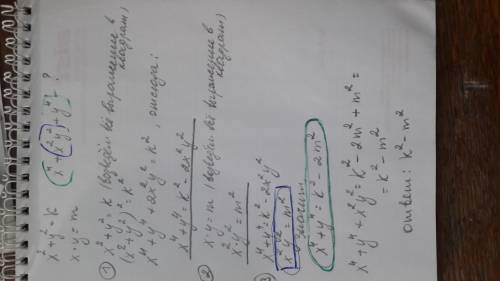 x²+y²=k (x⁴+(x²y²)+y⁴) - ?
x·y=m
① x²+y²=k (возведём всё выражение в квадрат)
(x²+y²)²=k²
x⁴+y⁴+2x²y²=k², отсюда:
x⁴+y⁴=k²-2x²y²
② x·y=m (возведём всё выражение в квадрат)
x²·y²=m²
③ x⁴+y⁴=k²-2x²y²
x²y²=m²
значит
x⁴+y⁴=k²-2m²
x⁴+y⁴+x²y²=k²-2m²+m²=
=k²-m²
ответ: k²-m²